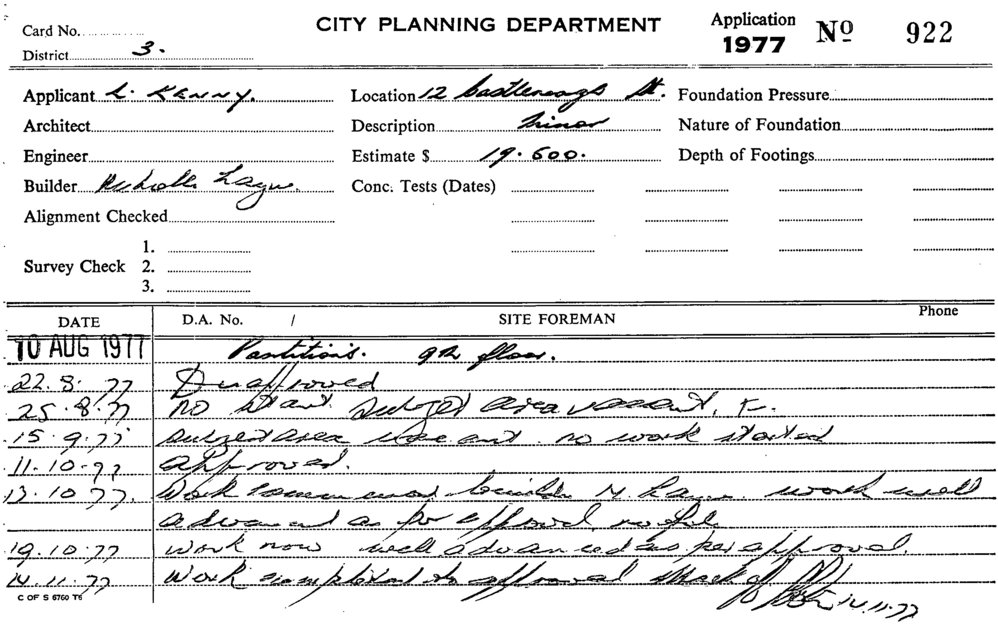 Card No. CITY PLANNING DEPARTMENT Application 1977 Nº 922
District 3.
Applicant L. KENNY. Location 12 Castlereagh St. Foundation Pressure
Architect Description Minor Nature of Foundation
Engineer Estimate $ 19.600. Depth of Footings
Builder Conc. Tests (Dates)
Alignment Checked
1.
Survey Check 2.
3.
DATE D.A. No. / SITE FOREMAN Phone
10 AUG 1977 Partitions. 9th floor.
22.8.77
25.8.77 no start subject area vacant.
15.9.77 subject area vacant no work started
11.10.77 approved.
13.10.77. Work commenced builder work well
advanced as per approval no
19.10.77 work now well advanced as per approval.
14.11.77 Work completed to approval
14.11.77
C OF S 6760 T6